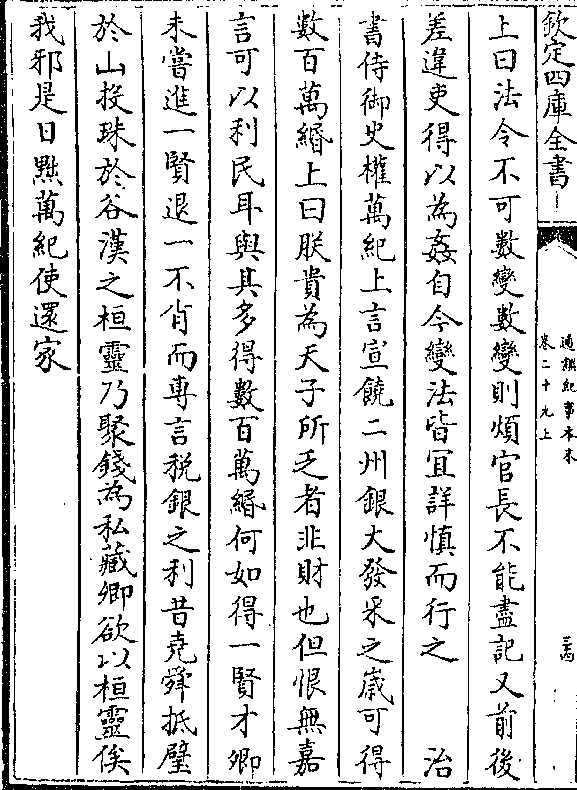 欽定四庫全書
通鑑紀事本末
卷二十九上
三四
上曰法令不可數變數變則煩官長不能盡記又前後
差違吏得以為姦自今變法皆宜詳慎而行之　治
書侍御史權萬紀上言宣饒二州銀大發采之歲可得
數百萬緡上曰朕貴為天子所乏者非財也但恨無嘉
言可以利民耳與其多得數百萬緡何如得一賢才卿
未嘗進一賢退一不肖而專言稅銀之利昔堯舜抵璧
於山投珠於谷漢之桓靈乃聚錢為私藏卿欲以桓靈俟
我邪是日黜萬紀使還家